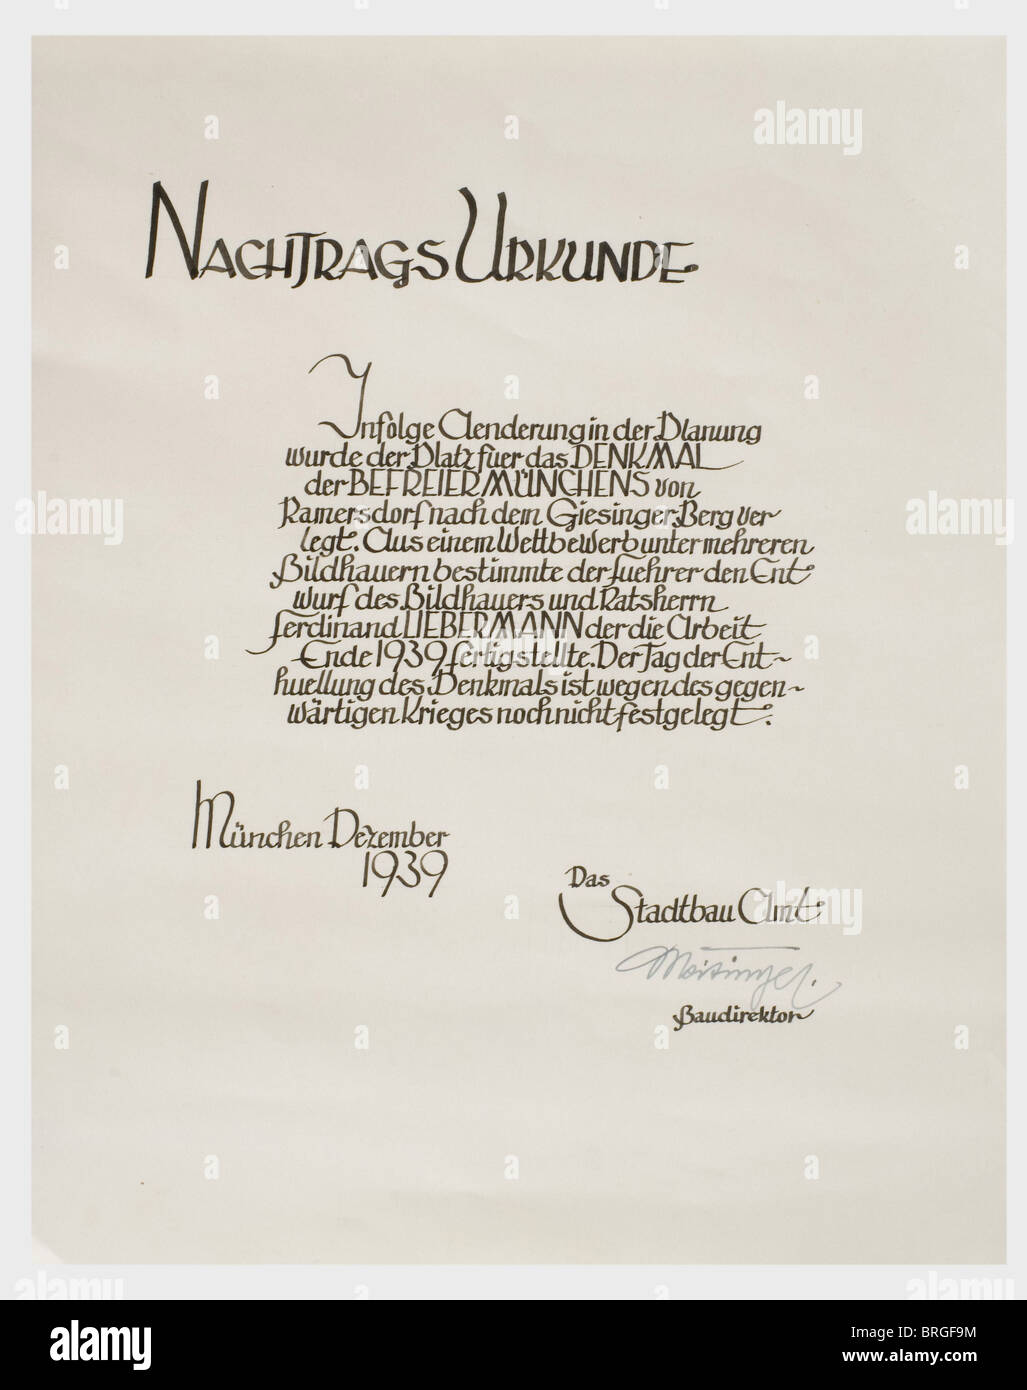 NACHTRAGS URKUNDE
Infolge Aenderung in der Planung
wurde der Platz fuer das DENKMAL
der BEFREIER MÜNCHENS von
Ramersdorf nach dem Giesinger Berg ver
legt. Aus einem Wettbewerb unter mehreren
Bildhauern bestimmte der Fuehrer den Ent
wurf des Bildhauers und Ratsherrn
Ferdinand LIEBERMANN der die Arbeit
Ende 1939 fertigstellte. Der Tag der Ent~
huellung des Denkmals ist wegen des gegen~
wärtigen Krieges noch nicht festgelegt.
München Dezember
1939
Das
Stadtbau Amt
Baudirektor
alamy
a
Image ID: BRGF9M
www.alamy.com